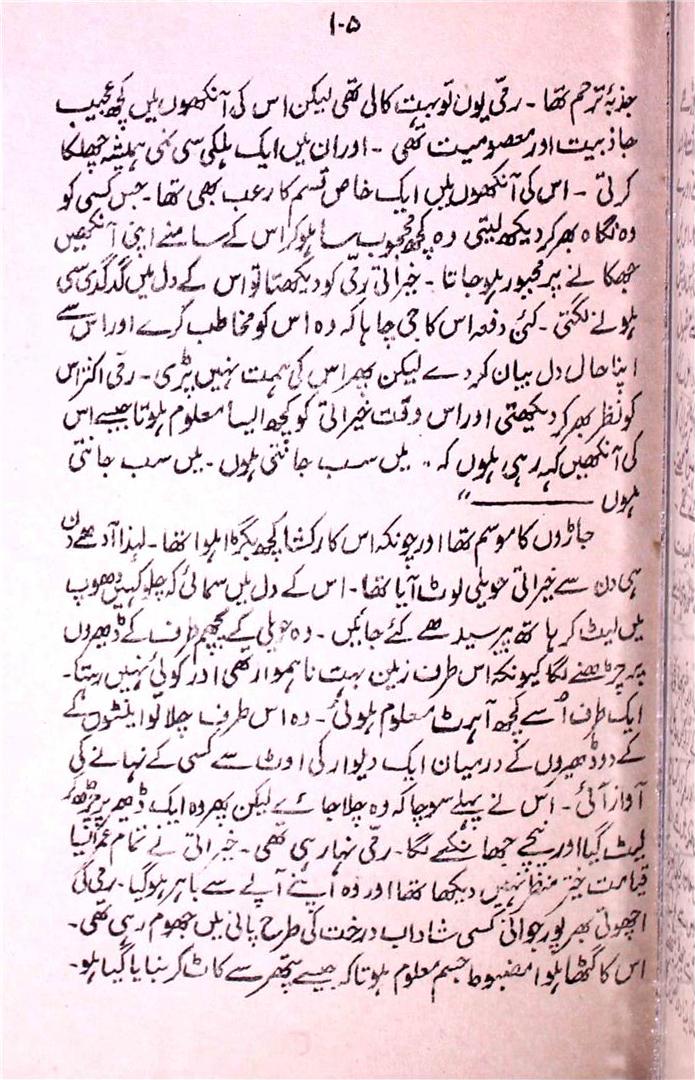 ۱۰۵
جذبۂ ترحم تھا۔ رمّی یوں تو بہت کالی تھی لیکن اس کی آنکھوں میں کچھ عجیب
جاذبیت اور معصومیت تھی۔ اور ان میں ایک ہلکی سی نمی ہمیشہ چھلکا
کرتی۔ اس کی آنکھوں میں ایک خاص قسم کا رعب بھی تھا۔ جس کسی کو
وہ نگاہ بھر کر دیکھ لیتی وہ کچھ محجوب سا ہو کر اس کے سامنے اپنی آنکھیں
جھکانے پر مجبور ہو جاتا۔ خیراتی رمّی کو دیکھتا تو اس کے دل میں گدگدی سی
ہونے لگتی۔ کئی دفعہ اس کا جی چاہا کہ وہ اس کو مخاطب کرے اور اس سے
اپنا حال دل بیان کر دے لیکن پھر اس کی ہمت نہیں پڑی۔ رمّی اکثر اس
کو نظر بھر کر دیکھتی اور اس وقت خیراتی کو کچھ ایسا معلوم ہوتا جیسے اس
کی آنکھیں کہہ رہی ہوں کہ ”میں سب جانتی ہوں۔ میں سب جانتی
ہوں ———“
جاڑوں کا موسم تھا اور چونکہ اس کا رکشا کچھ بگڑا ہوا تھا۔ لہذا آدھے دن
ہی دن سے خیراتی حویلی لوٹ آیا تھا۔ اس کے دل میں سمائی کہ چلو کہیں دھوپ
میں لیٹ کر ہاتھ پیر سیدھے کئے جائیں۔ وہ حویلی کے پچھم طرف کے ڈھیروں
پر چڑھنے لگا کیونکہ اس طرف زمین بہت ناہموار تھی اور کوئی نہیں رہتا۔
ایک طرف اُسے کچھ آہٹ معلوم ہوئی۔ وہ اس طرف چلا تو اینٹوں کے
کے دو ڈھیروں کے درمیان ایک دیوار کی اوٹ سے کسی کے نہانے کی
آواز آئی۔ اس نے پہلے سوچا کہ وہ چلا جائے لیکن پھر وہ ایک ڈھیر پر چڑھ کر
لیٹ گیا اور نیچے جھانکنے لگا۔ رمّی نہا رہی تھی۔ خیراتی نے تمام عمر ایسا
قیامت خیز منظر نہیں دیکھا تھا اور وہ اپنے آپے سے باہر ہو گیا۔ رمّی کی
اچھوتی بھرپور جوانی کسی شاداب درخت کی طرح پانی میں جھوم رہی تھی۔
اس کا گٹھا ہوا مضبوط جسم معلوم ہوتا کہ جیسے پتھر سے کاٹ کر بنایا گیا ہو۔